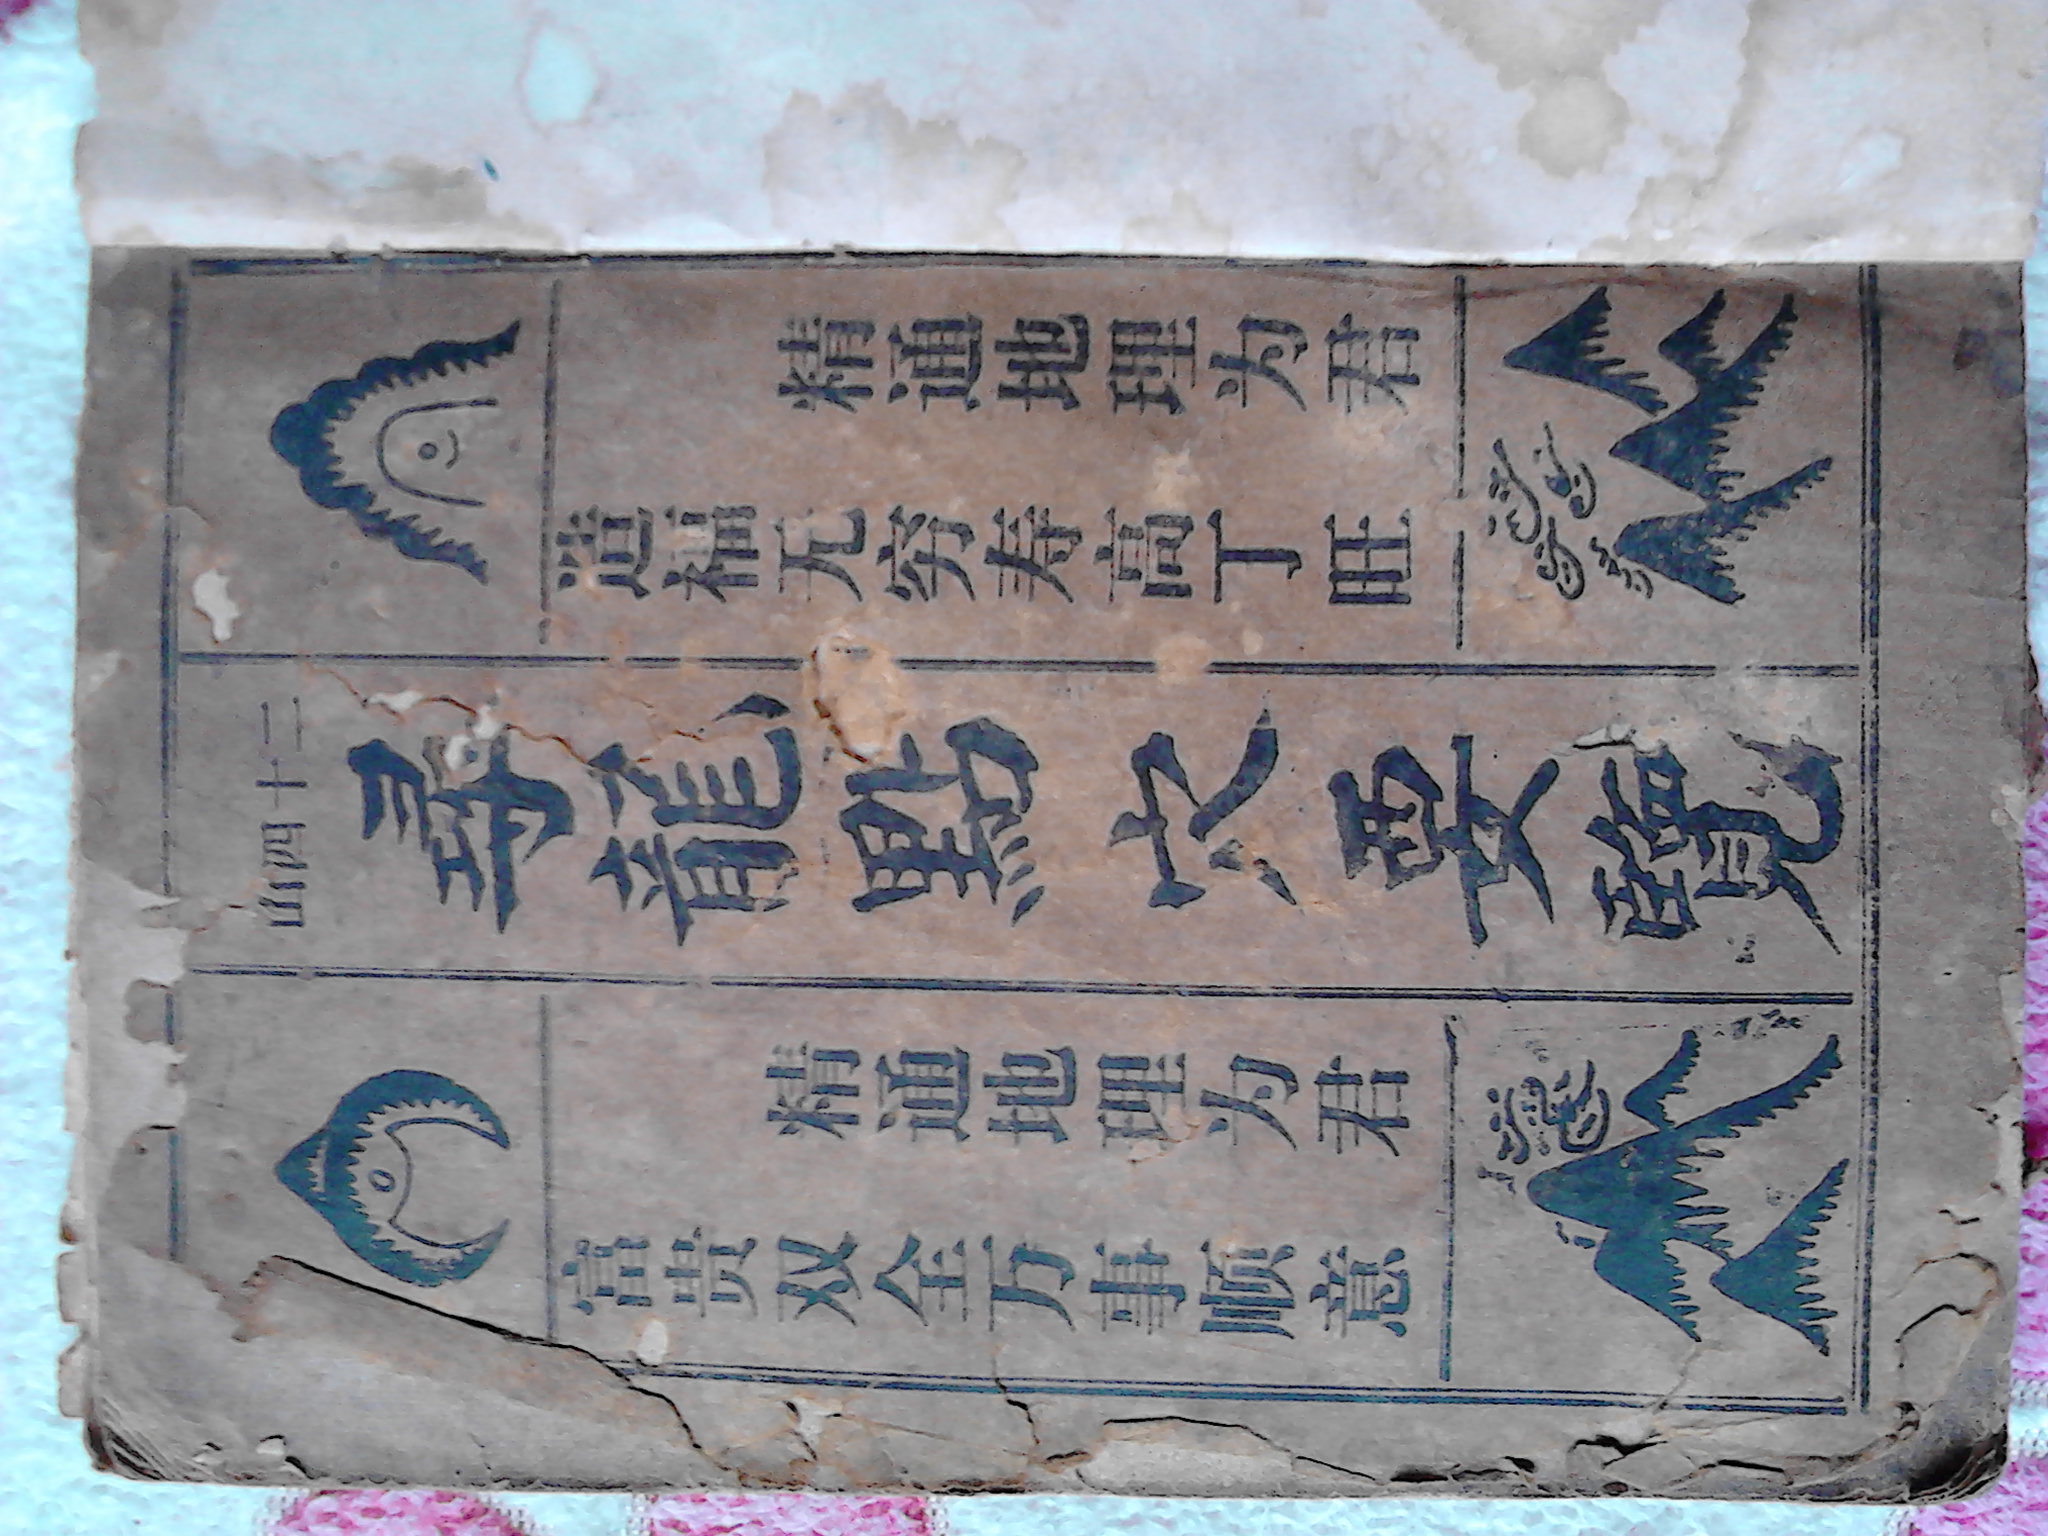 精通地理为君
造福无穷寿高丁旺
二十四山
尋龍點穴要覽
精通地理为君
富贵双全万事顺意